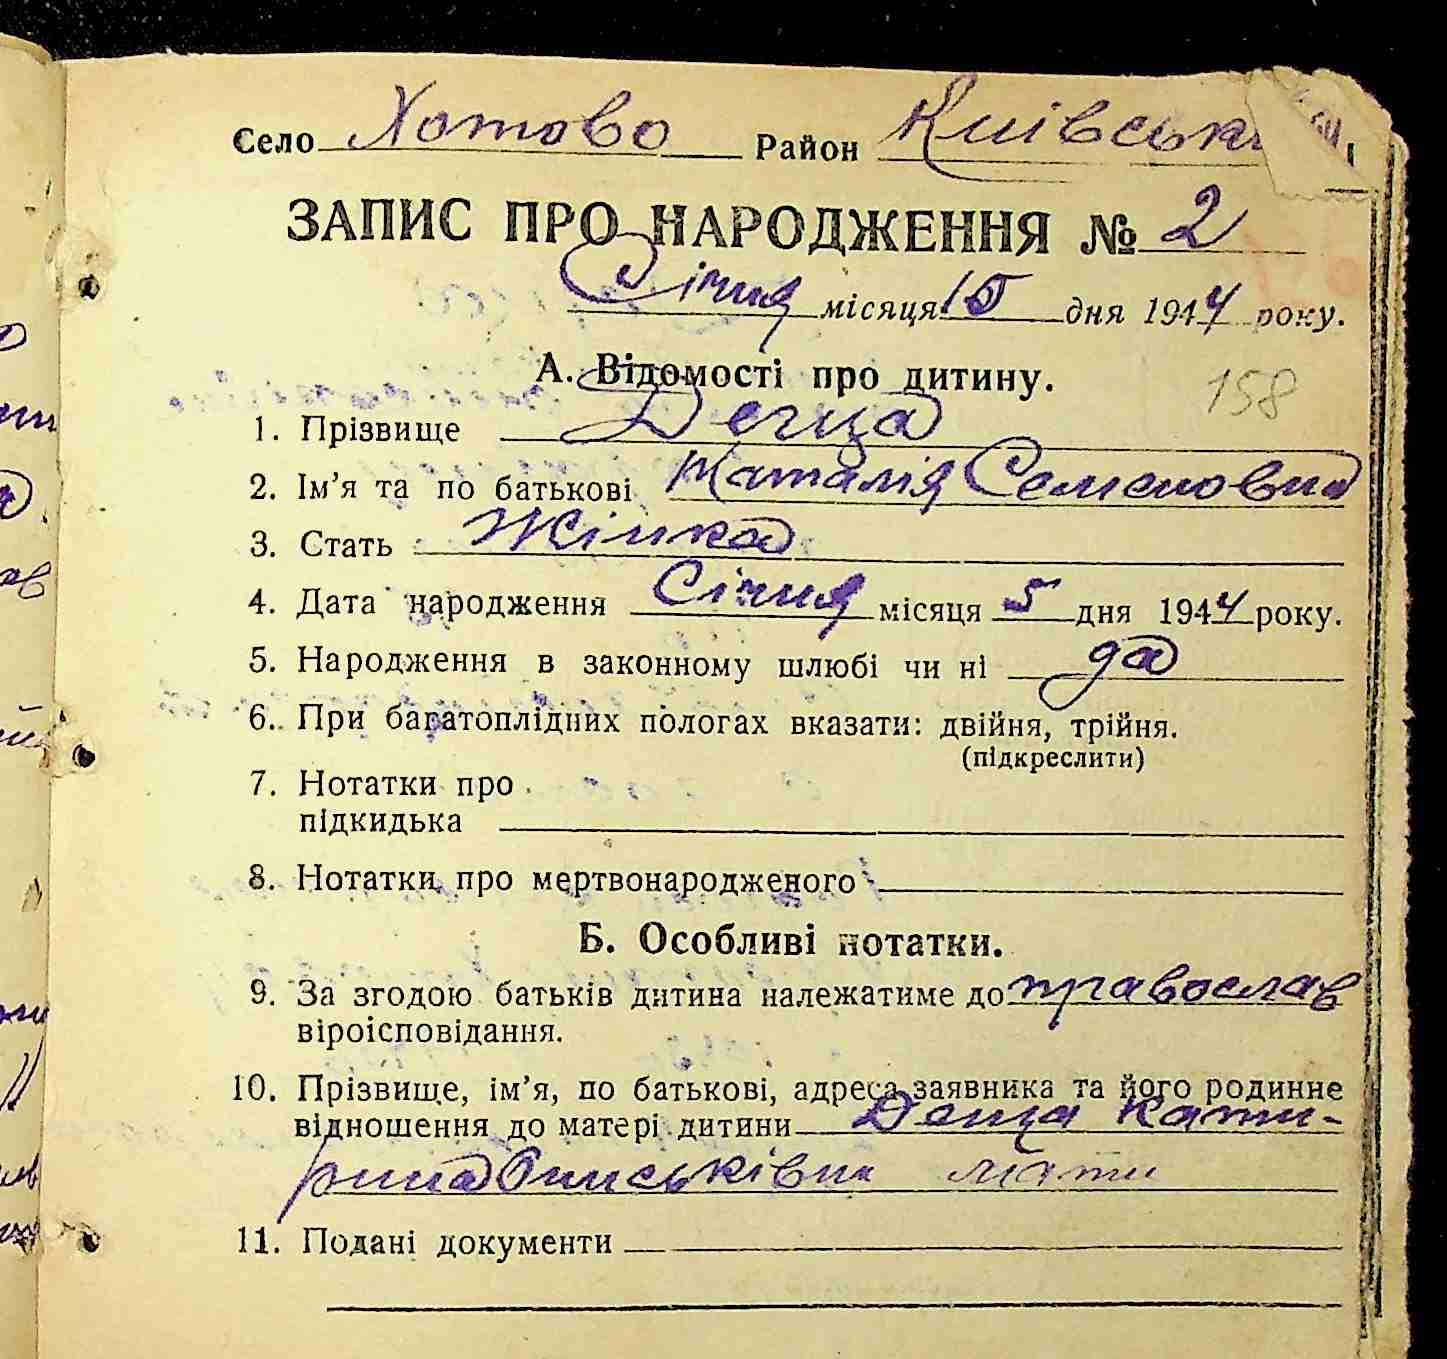 Село Хотово Район Київськ
ЗАПИС ПРО НАРОДЖЕННЯ № 2
Січня місяця 15 дня 1944 року.
А. Відомості про дитину.
158
1. Прізвище Деща
2. Ім’я та по батькові Наталія Семеновна
3. Стать Жінка
4. Дата народження Січня місяця 5 дня 1944 року.
5. Народження в законному шлюбі чи ні да
6. При багатоплідних пологах вказати: двійня, трійня.
(підкреслити)
7. Нотатки про
підкидька
8. Нотатки про мертвонародженого
Б. Особливі нотатки.
9. За згодою батьків дитина належатиме до православ
віроісповідання.
10. Прізвище, ім’я, по батькові, адреса заявника та його родинне
відношення до матері дитини Деща Кати-
рина мати
11. Подані документи